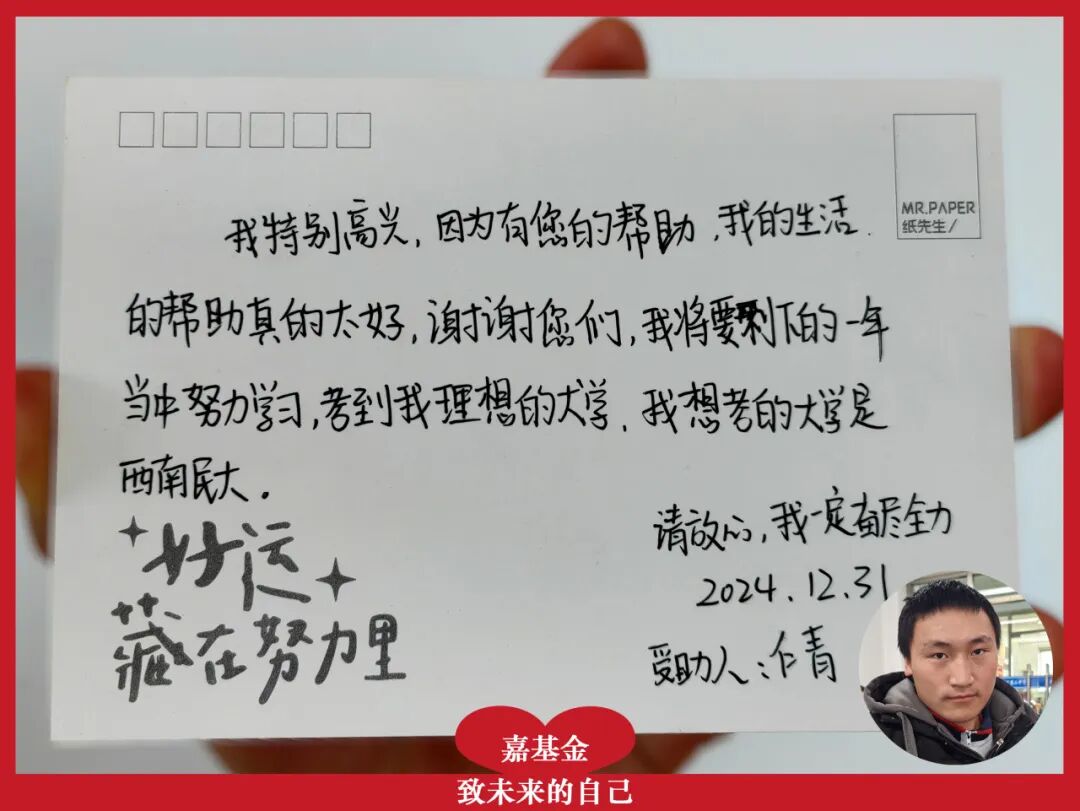 MR.PAPER
纸先生/
我特别高兴，因为有您的帮助，我的生活
的帮助真的太好，谢谢您们，我将要剩下的一年
当中努力学习，考到我理想的大学，我想考的大学是
西南民大．
请放心，我一定奋尽全力
2024.12.31
受助人：青
好运
藏在努力里
嘉基金
致未来的自己